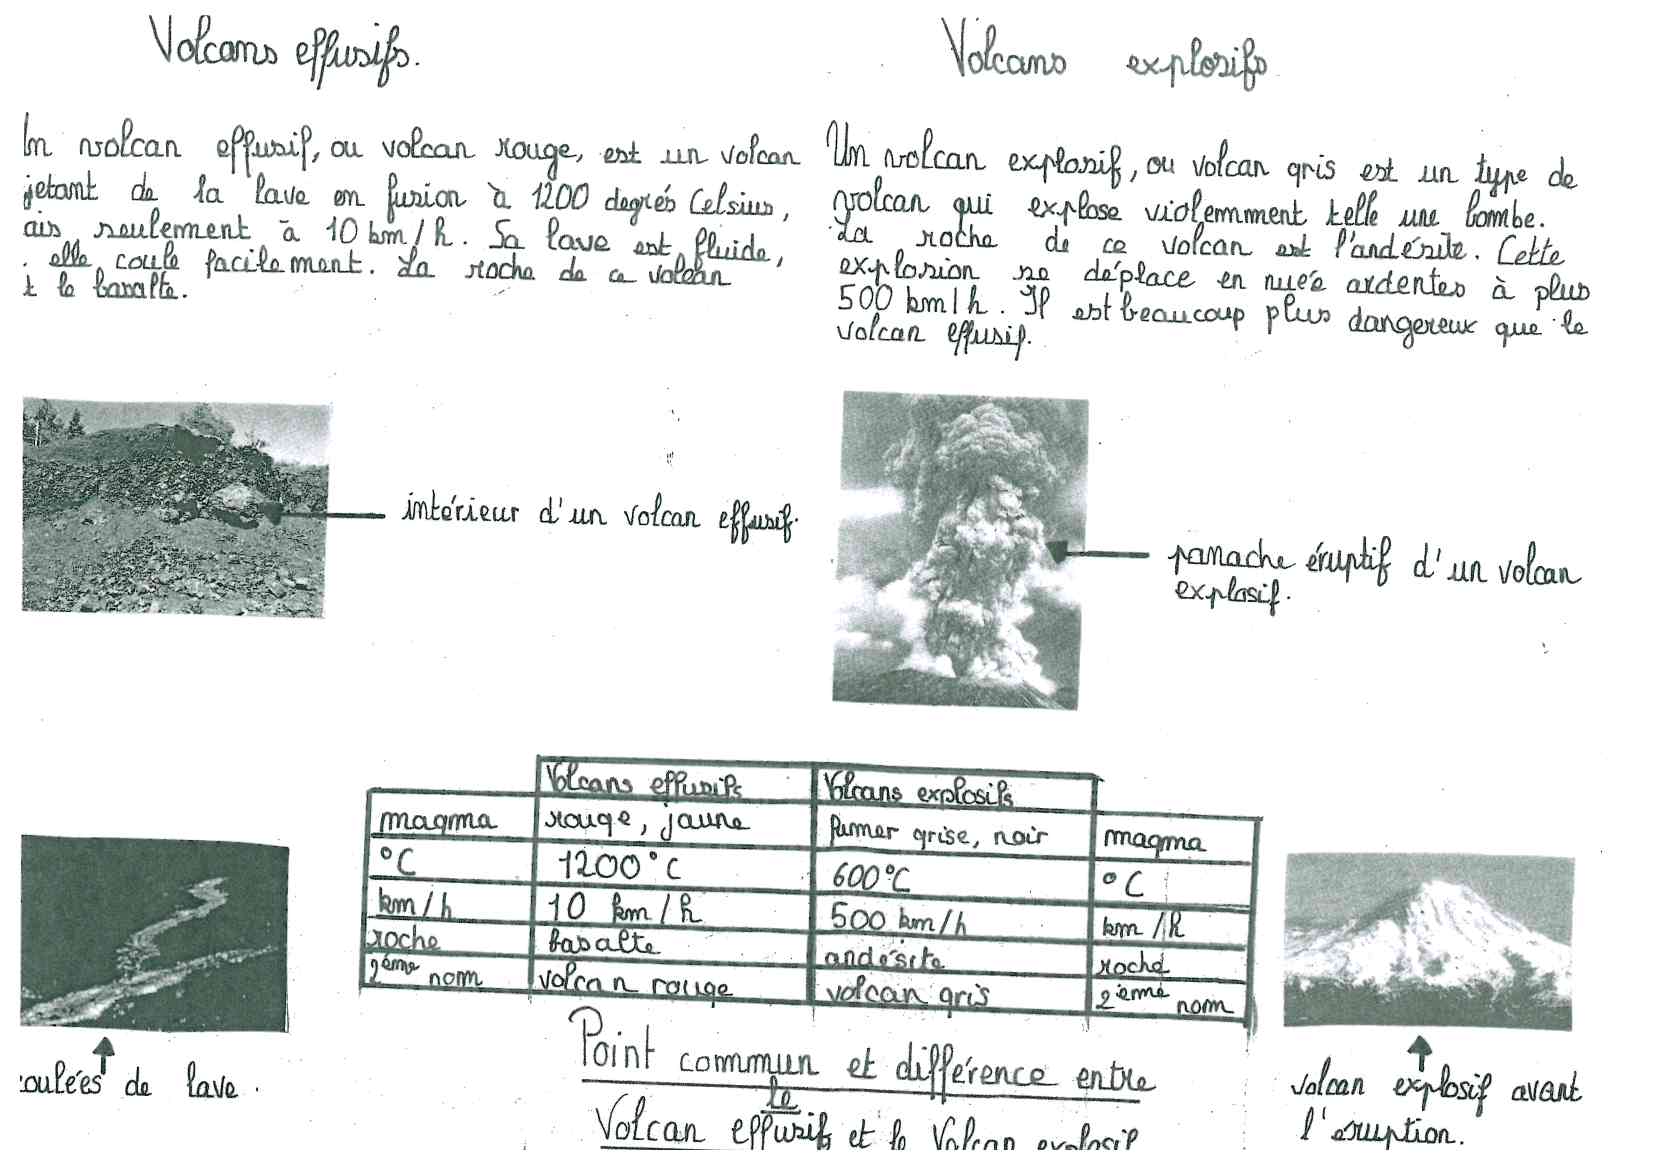 Volcans effusifs.
In volcan effusif, ou volcan rouge, est un volcan
jetant de la lave en fusion à 1200 degrés Celsius,
ais seulement à 10 km/h. Sa lave est fluide,
. elle coule facilement. La roche de ce volcan
t le basalte.
intérieur d'un volcan effusif.
Volcans explosifs
Un volcan explosif, ou volcan gris est un type de
volcan qui explose violemment telle une bombe.
La roche de ce volcan est l'andésite. Cette
explosion se déplace en nuée ardentes à plus
500 km/h. Il est beaucoup plus dangereux que le
volcan effusif.
panache éruptif d'un volcan
explosif.
Volcans effusifs Volcans explosifs
magma rouge, jaune fumer grise, noir magma
°C 1200°C 600°C °C
km/h 10 km/h 500 km/h km/h
roche basalte andésite roche
2ème nom volcan rouge volcan gris 2ème nom
oulées de lave.
volcan explosif avant
l'eruption.
Point commun et différence entre
le
Volcan effusifs et le Volcan explosif